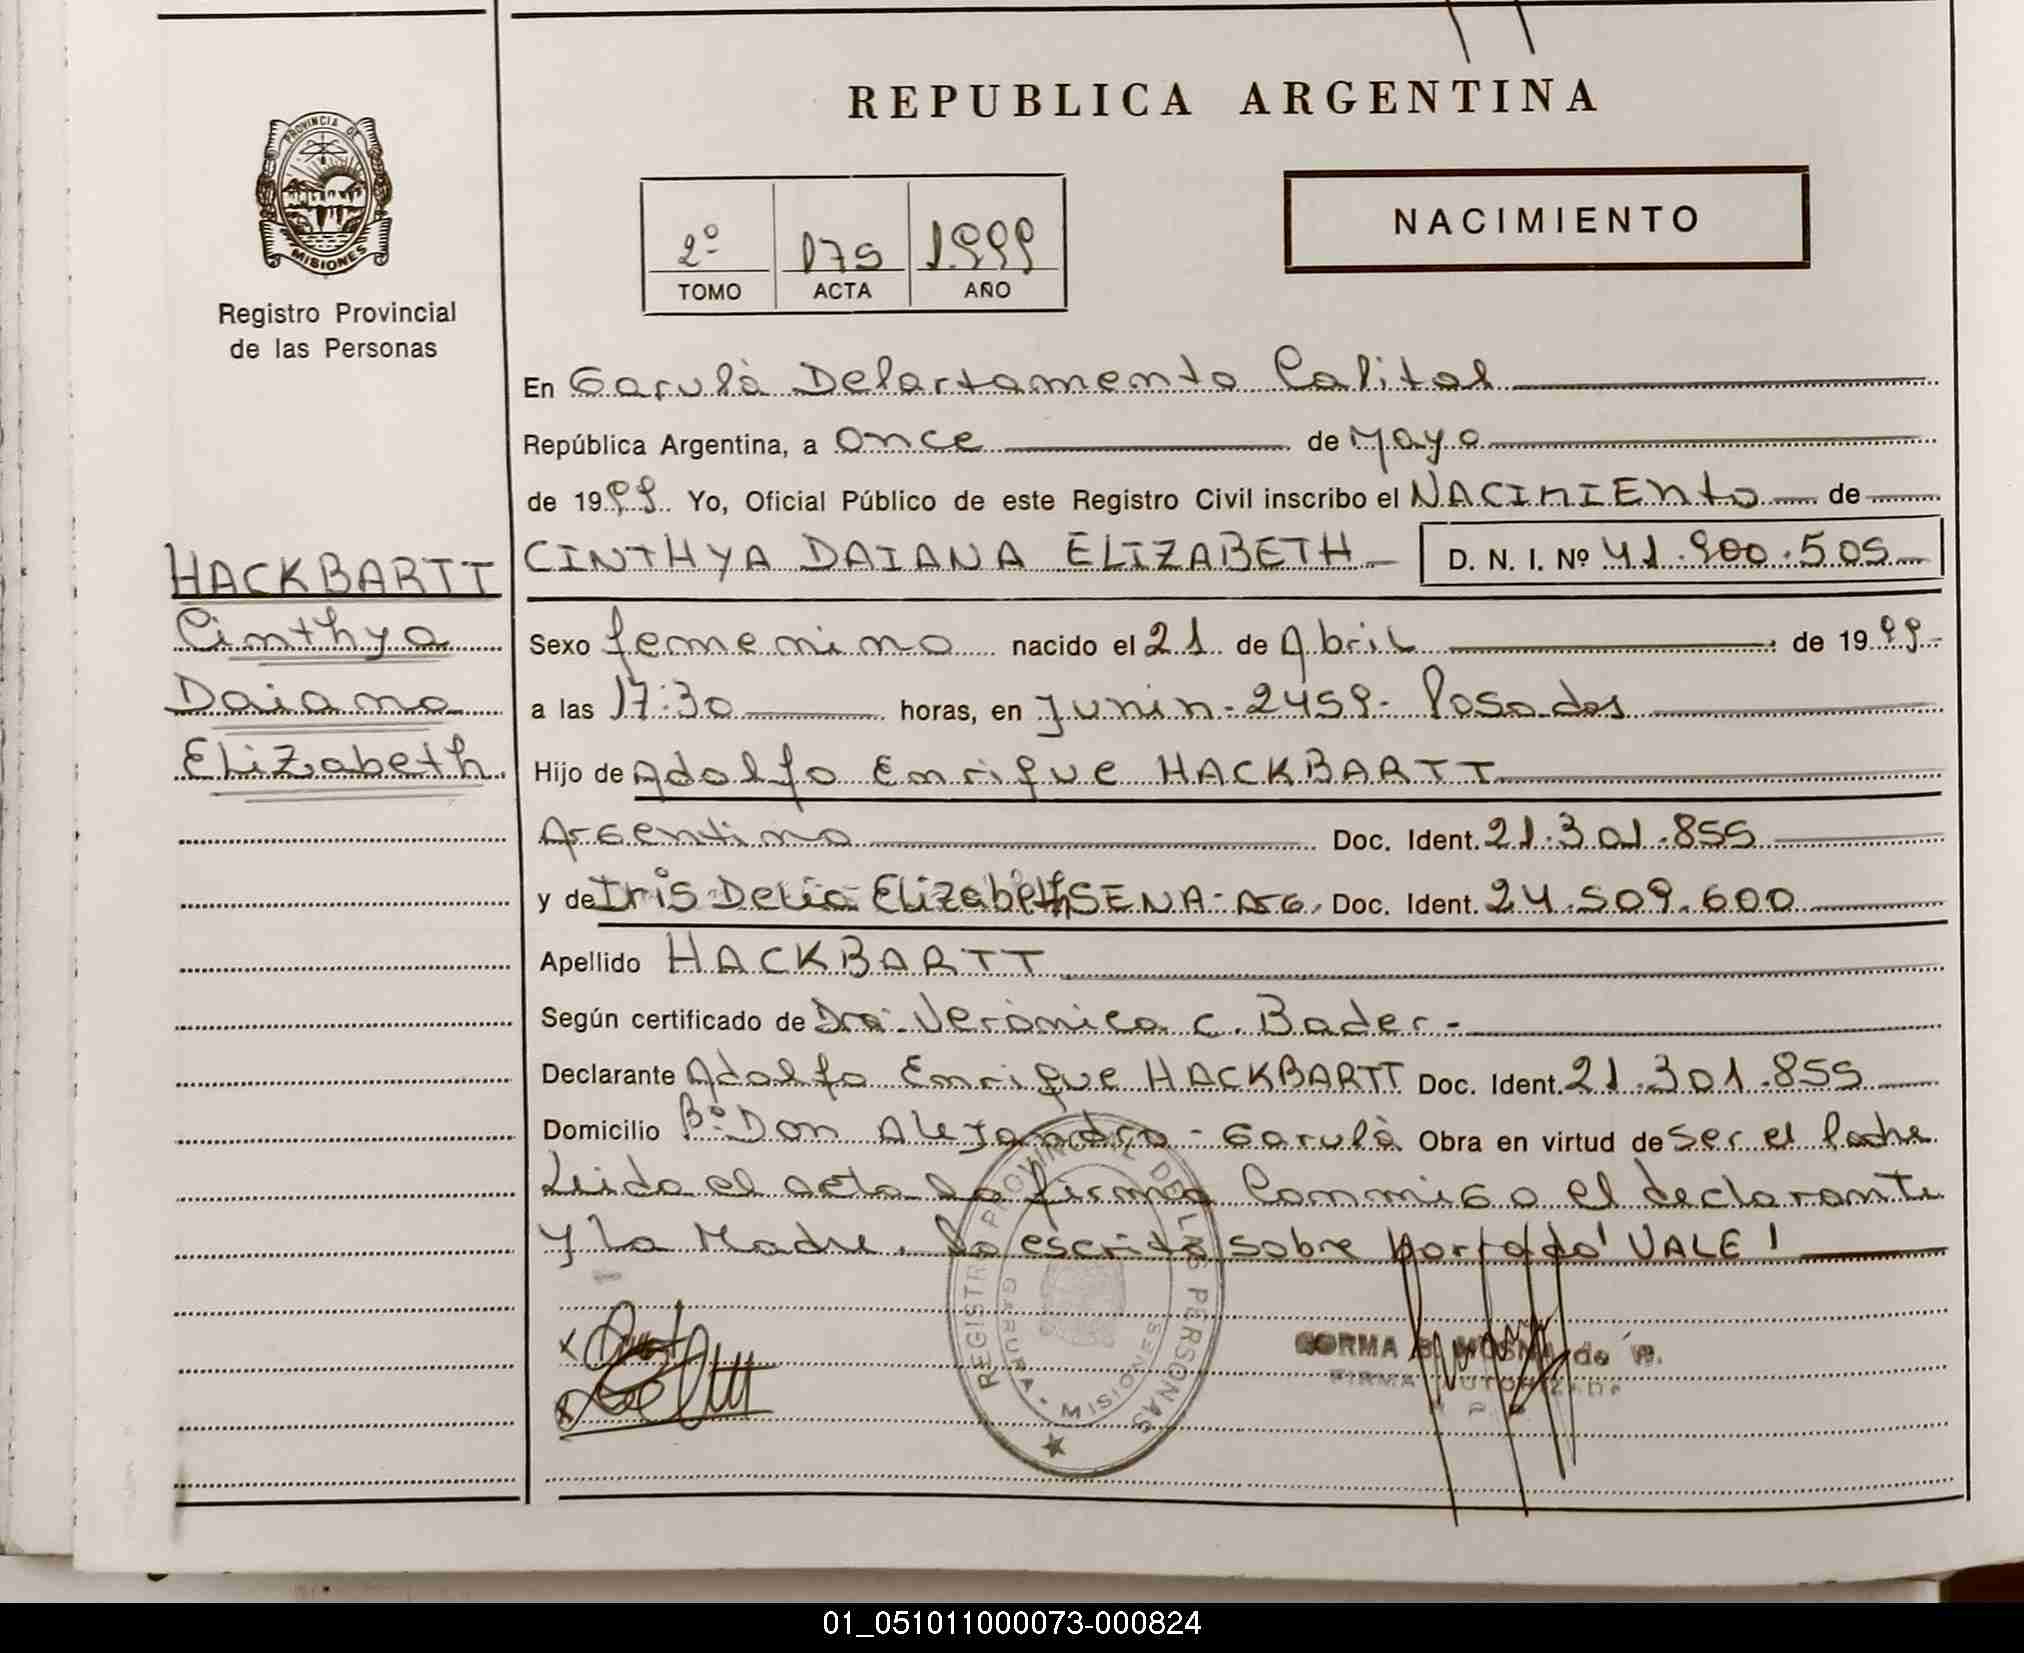 REPUBLICA ARGENTINA
PROVINCIA DE
MISIONES
Registro Provincial
de las Personas
NACIMIENTO
2º 175 1.999
TOMO ACTA AÑO
En Garupá Departamento Capital
República Argentina, a once de Mayo
de 1999 Yo, Oficial Público de este Registro Civil inscribo el NACIMIENto de
CINTHYA DAIANA ELIZABETH D. N. I. Nº 41.900.505
HACKBARTT
Cinthya
Daiana
Elizabeth
Sexo femenino nacido el 21 de Abril de 1999
a las 17:30 horas, en Junin - 2459 - Posadas
Hijo de Adolfo Enrique HACKBARTT
Argentino Doc. Ident. 21.301.855
y de Iris Delia Elizabeth SENA - Arg. Doc. Ident. 24.509.600
Apellido HACKBARTT
Según certificado de Dra. Verónica C. Bader.-
Declarante Adolfo Enrique HACKBARTT Doc. Ident. 21.301.855
Domicilio Bº Don Alejandro - Garupá Obra en virtud de ser el Padre
Leida el acta la firma Conmigo el declarante
y la Madre. Lo escrito sobre borrado' VALE!
REGISTRO PROVINCIAL DE LAS PERSONAS
GARUPA - MISIONES
FIRMA AUTORIZADA
01_051011000073-000824